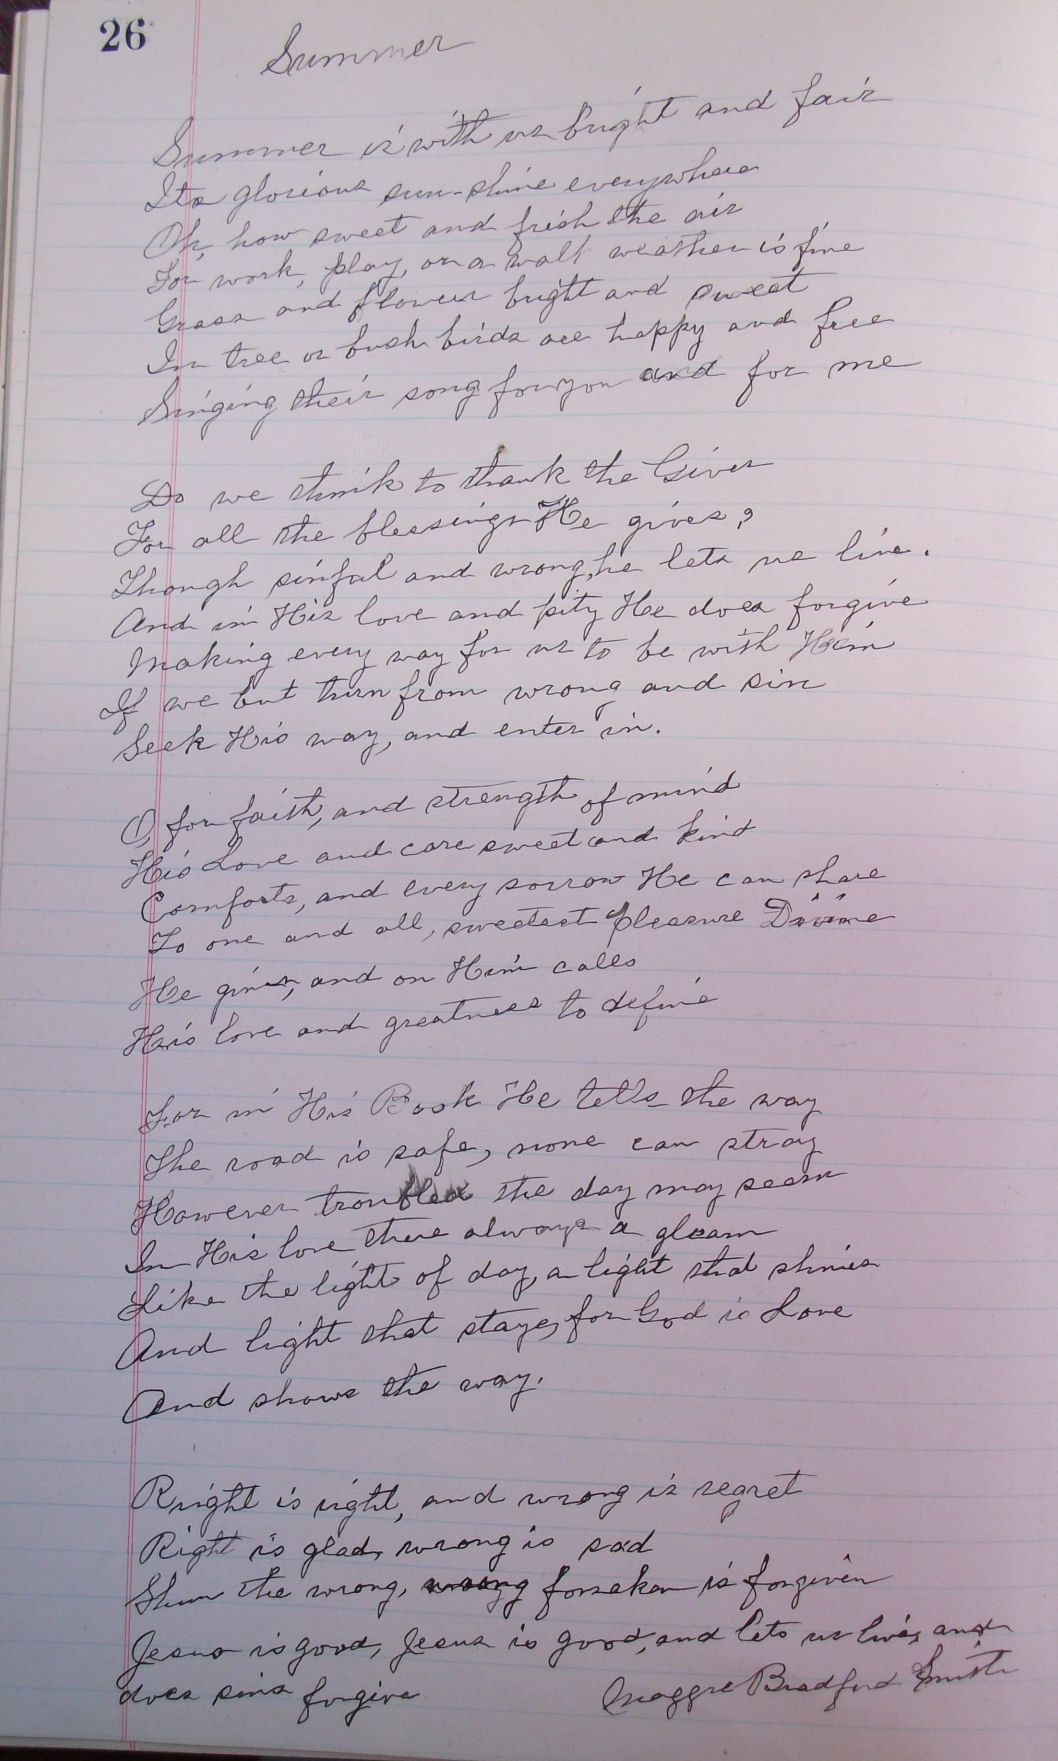 26
Summer
Summer is with us bright and fair
Its glorious sun-shine everywhere
Oh, how sweet and fresh the air
For work, play, or a walk weather is fine
Grass and flowers bright and sweet
In tree or bush birds are happy and free
Singing their song for you and for me
Do we think to thank the Giver
For all the blessings He gives?
Though sinful and wrong, he lets us live.
And in His love and pity He does forgive
Making every way for us to be with Him
If we but turn from wrong and sin
Seek His way, and enter in.
O, for faith, and strength of mind
His Love and care sweet and kind
Comforts, and every sorrow He can share
To one and all, sweetest pleasure Divine
He gives, and on Him calls
His love and greatness to define
For in His Book He tells the way
The road is safe, none can stray
However troubled the day may seem
In His love there always a gleam
Like the light of day, a light that shines
And light that stays, for God is Love
And shows the way.
Rright is right, and wrong is regret
Right is glad, wrong is sad
Shun the wrong, wrong forsaken is forgiven
Jesus is good, Jesus is good, and lets us live, and
does sins forgive
Maggie Bradford Smith